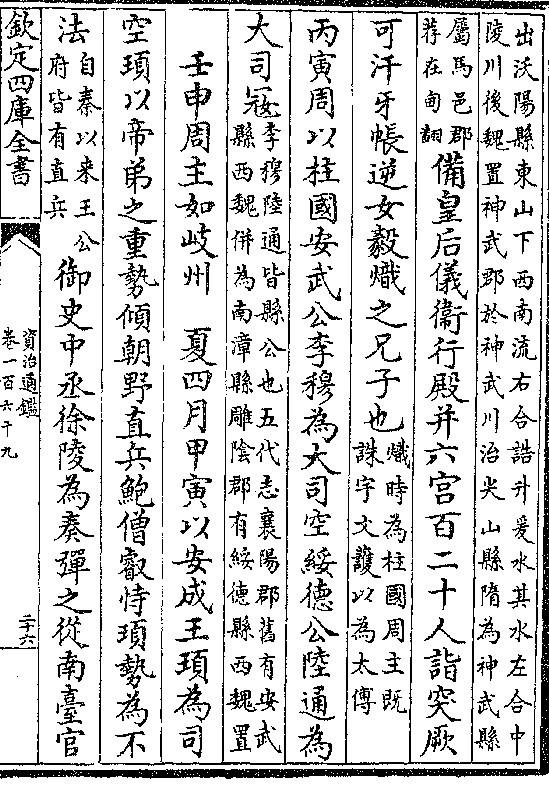 出沃陽縣東山下西南流右合誥升爰水其水左合中
陵川後魏置神武郡於神武川治尖山縣隋為神武縣
屬馬邑郡
荐在甸翻
備皇后儀衞行殿并六宫百二十人詣突厥
可汗牙帳逆女毅熾之兄子也
熾時為柱國周主既
誅宇文護以為太傅
丙寅周以柱國安武公李穆為大司空綏德公陸通為
大司冦
李穆陸通皆縣公也五代志襄陽郡舊有安武
縣西魏併為南漳縣雕陰郡有綏德縣西魏置
壬申周主如岐州　夏四月甲寅以安成王頊為司
空頊以帝弟之重勢傾朝野直兵鮑僧叡恃頊勢為不
法
自秦以来王公
府皆有直兵
御史中丞徐陵為奏彈之從南臺官
欽定四庫全書
資治通鑑
卷一百六十九
二十六